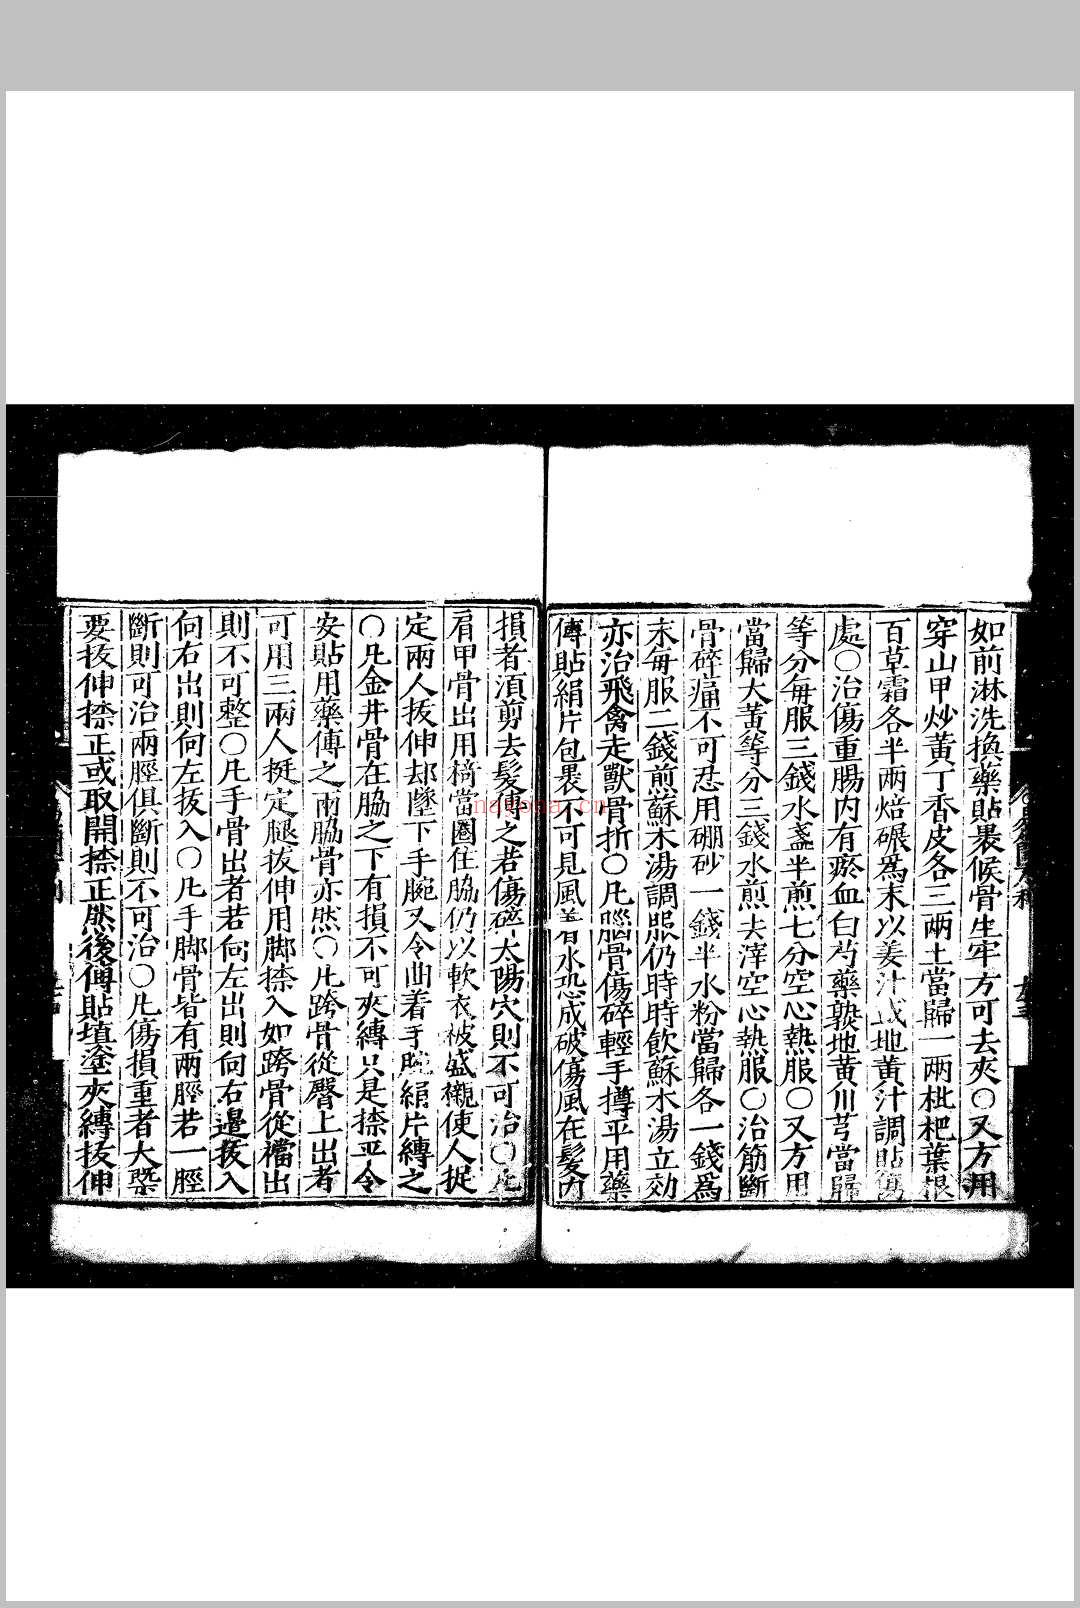 如前淋洗換藥貼裹候骨生牢方可去夾○又方用
穿山甲炒黃丁香皮各三兩土當歸一兩枇杷葉根
百草霜各半兩焙碾爲末以姜汁或地黃汁調貼傷
處○治傷重腸内有瘀血白芍藥熟地黃川芎當歸
等分每服三錢水盞半煎七分空心熱服○又方用
當歸大黃等分三錢水煎去滓空心熱服○治筋斷
骨碎痛不可忍用硼砂一錢半水粉當歸各一錢爲
末每服二錢煎蘇木湯調服仍時時飲蘇木湯立効
亦治飛禽走獸骨折○凡腦骨傷碎輕手撙平用藥
傅貼絹片包裹不可見風着水恐成破傷風在髮内
損者湏剪去髮傅之若傷碎太陽穴則不可治○凡
肩甲骨出用椅當圈住脇仍以軟衣被盛襯使人捉
定兩人拔伸却墜下手腕又令曲着手腕絹片縛之
○凡金井骨在脇之下有損不可夾縛只是捺平令
安貼用藥傅之兩脇骨亦然○凡跨骨從臀上出者
可用三兩人挺定腿拔伸用脚捺入如跨骨從襠出
則不可整○凡手骨出者若向左出則向右邉拔入
向右出則向左拔入○凡手脚骨皆有兩脛若一脛
斷則可治兩脛俱斷則不可治○凡傷損重者大槩
要拔伸捺正或取開捺正然後傅貼填塗夾縛拔伸
nafona.cn